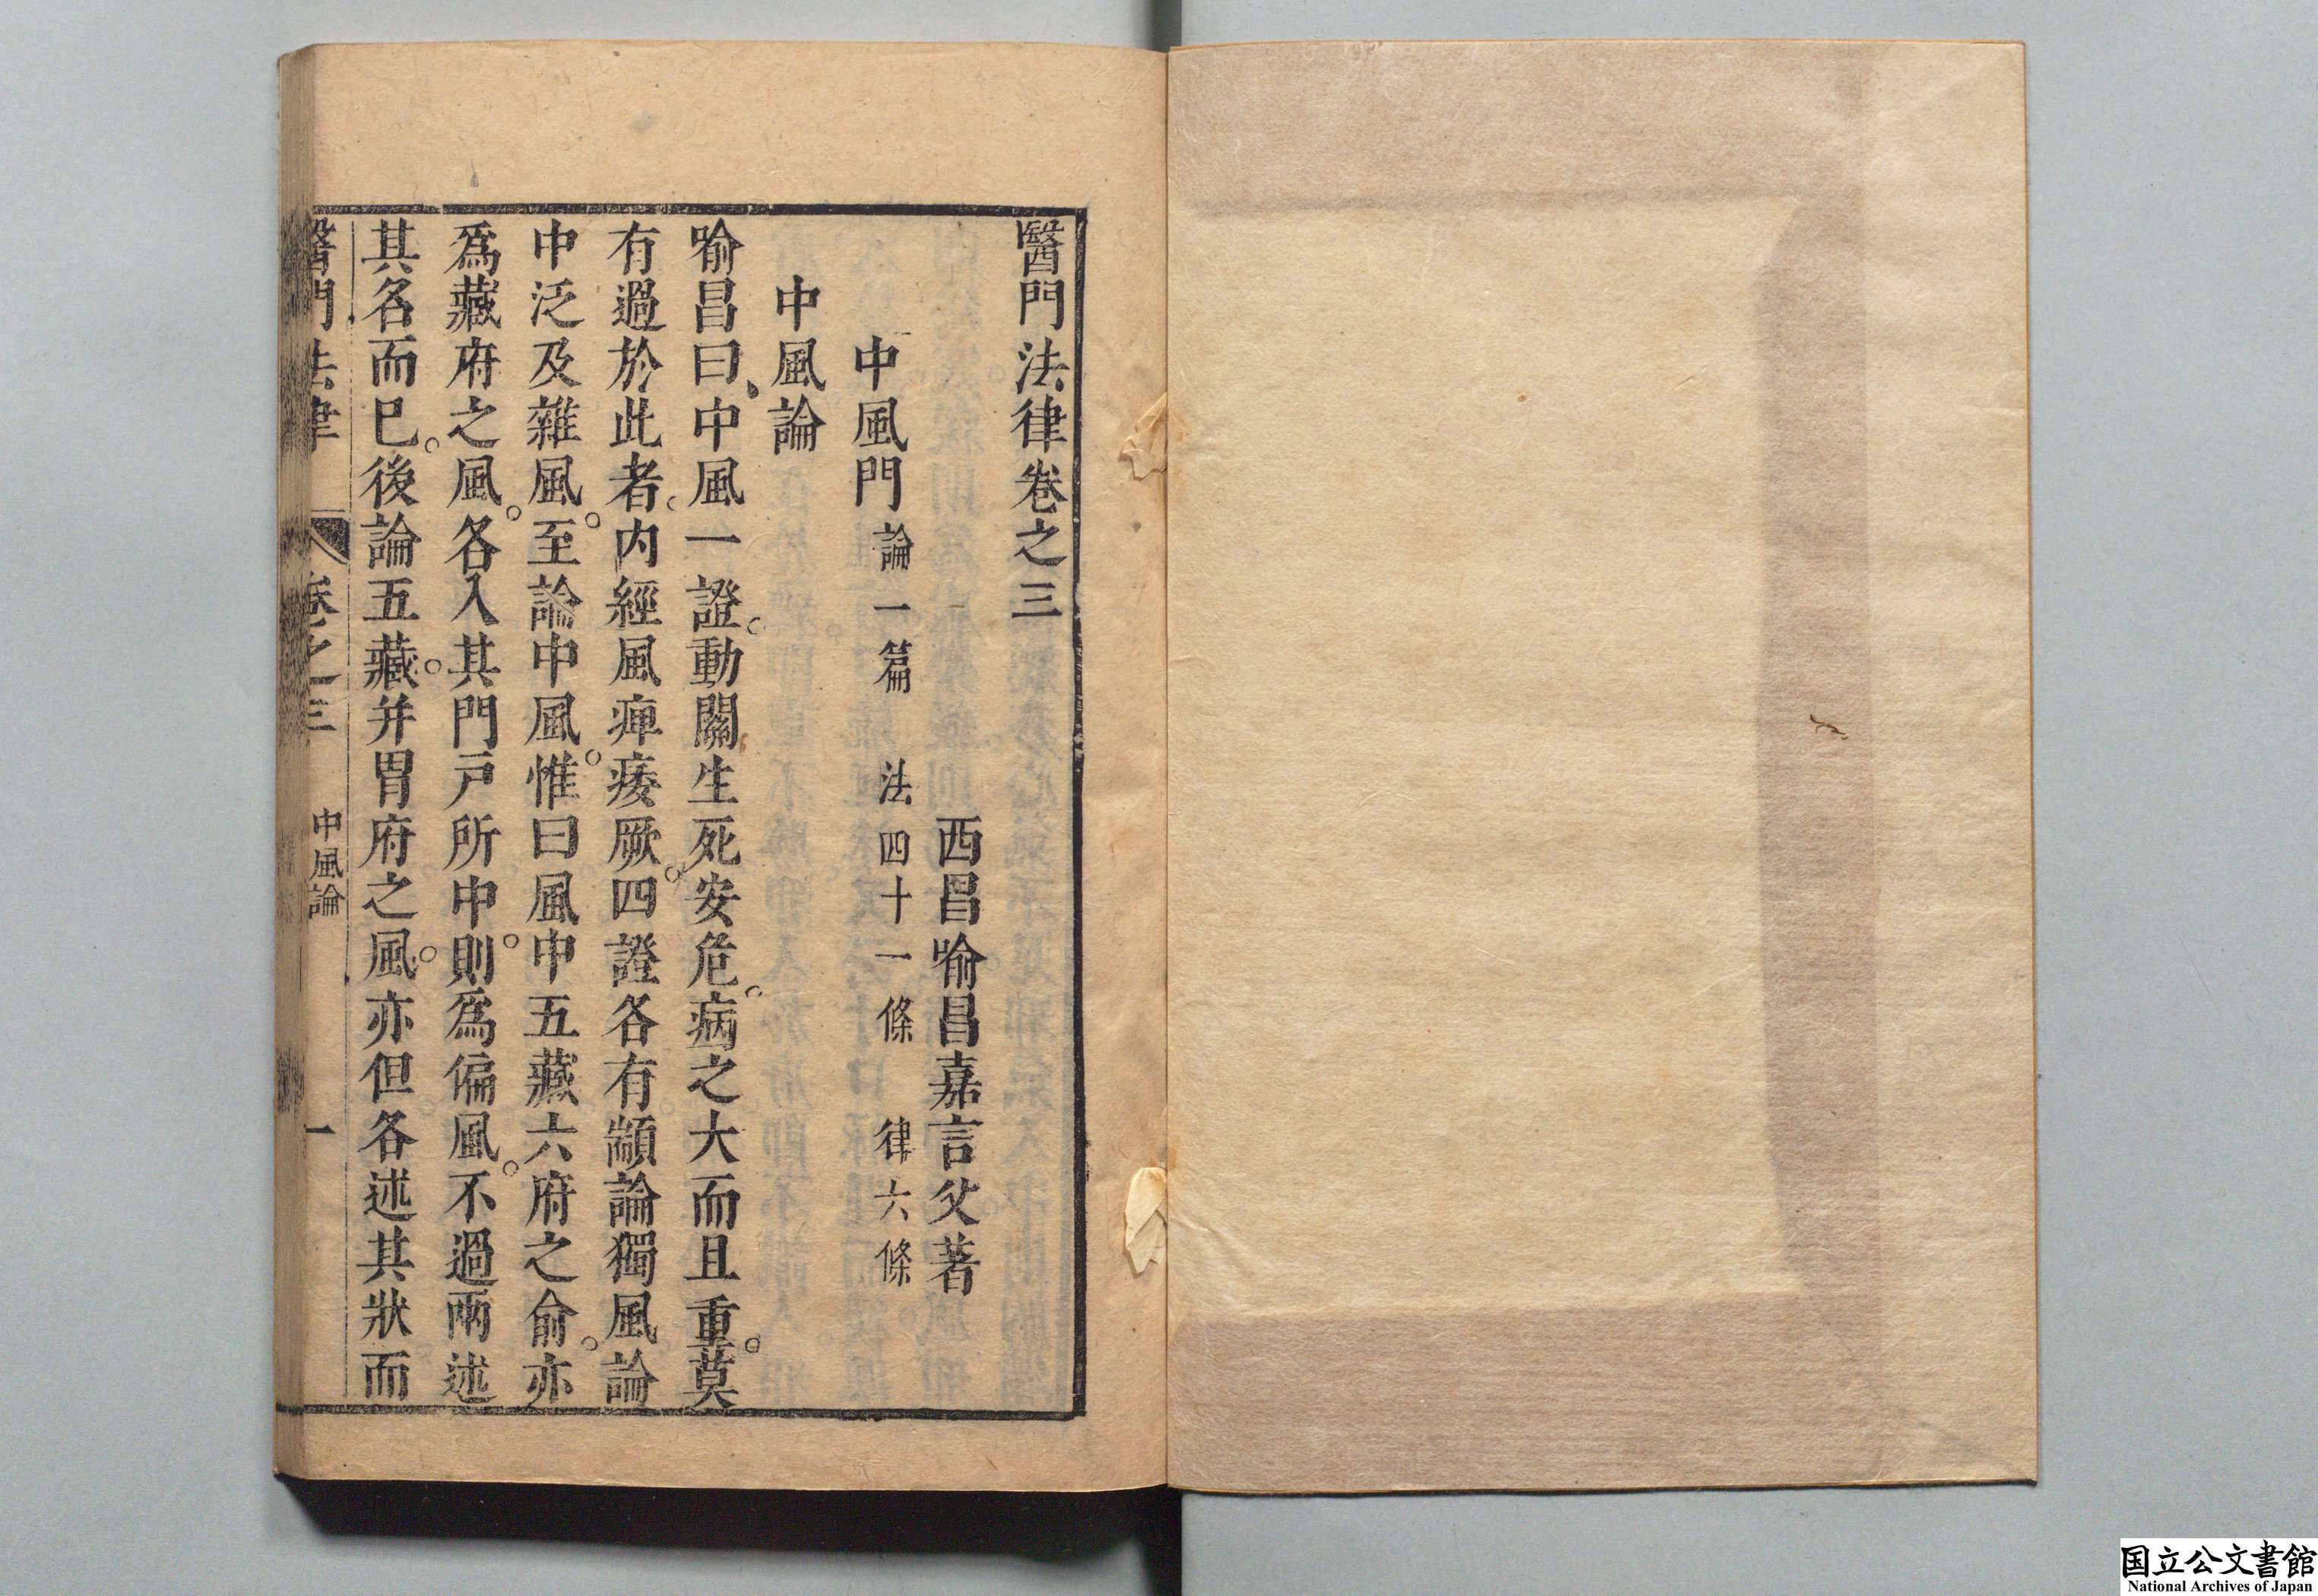 醫門法律卷之三
西昌喻昌嘉言父著
中風門 論一篇 法四十一條 律六條
中風論
喻昌曰、中風一證。動關生死安危。病之大而且重。莫
有過於此者。内經風痺痿厥。四證各有顓論獨風論
中泛及雜風。至論中風。惟曰風中五藏六府之俞。亦
爲藏府之風。各入其門戸所中。則爲偏風。不過兩述
其名而已。後論五藏。并胃府之風。亦但各述其狀而
醫門法律 卷之三 中風論 一
国立公文書館
National Archives of Japan